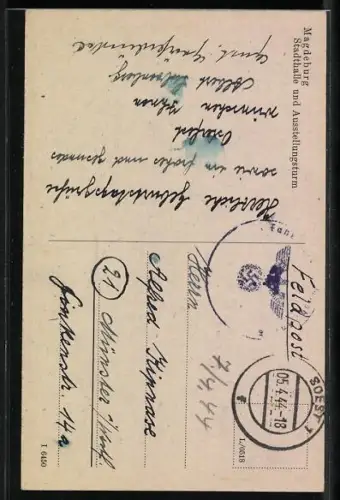 Magdeburg
Stadthalle und Ausstellungsturm
Herzliche Geburtstagsgrüße
sowie ein frohes und gesundes
Osterfest
wünschen Ihnen
Albert
und
Feldpost
SOEST
05.4.44-18
7/4.44
Herrn
Alfred
(21) Münster i/Westf.
Finkenstr. 14a
L/0518
I 6450